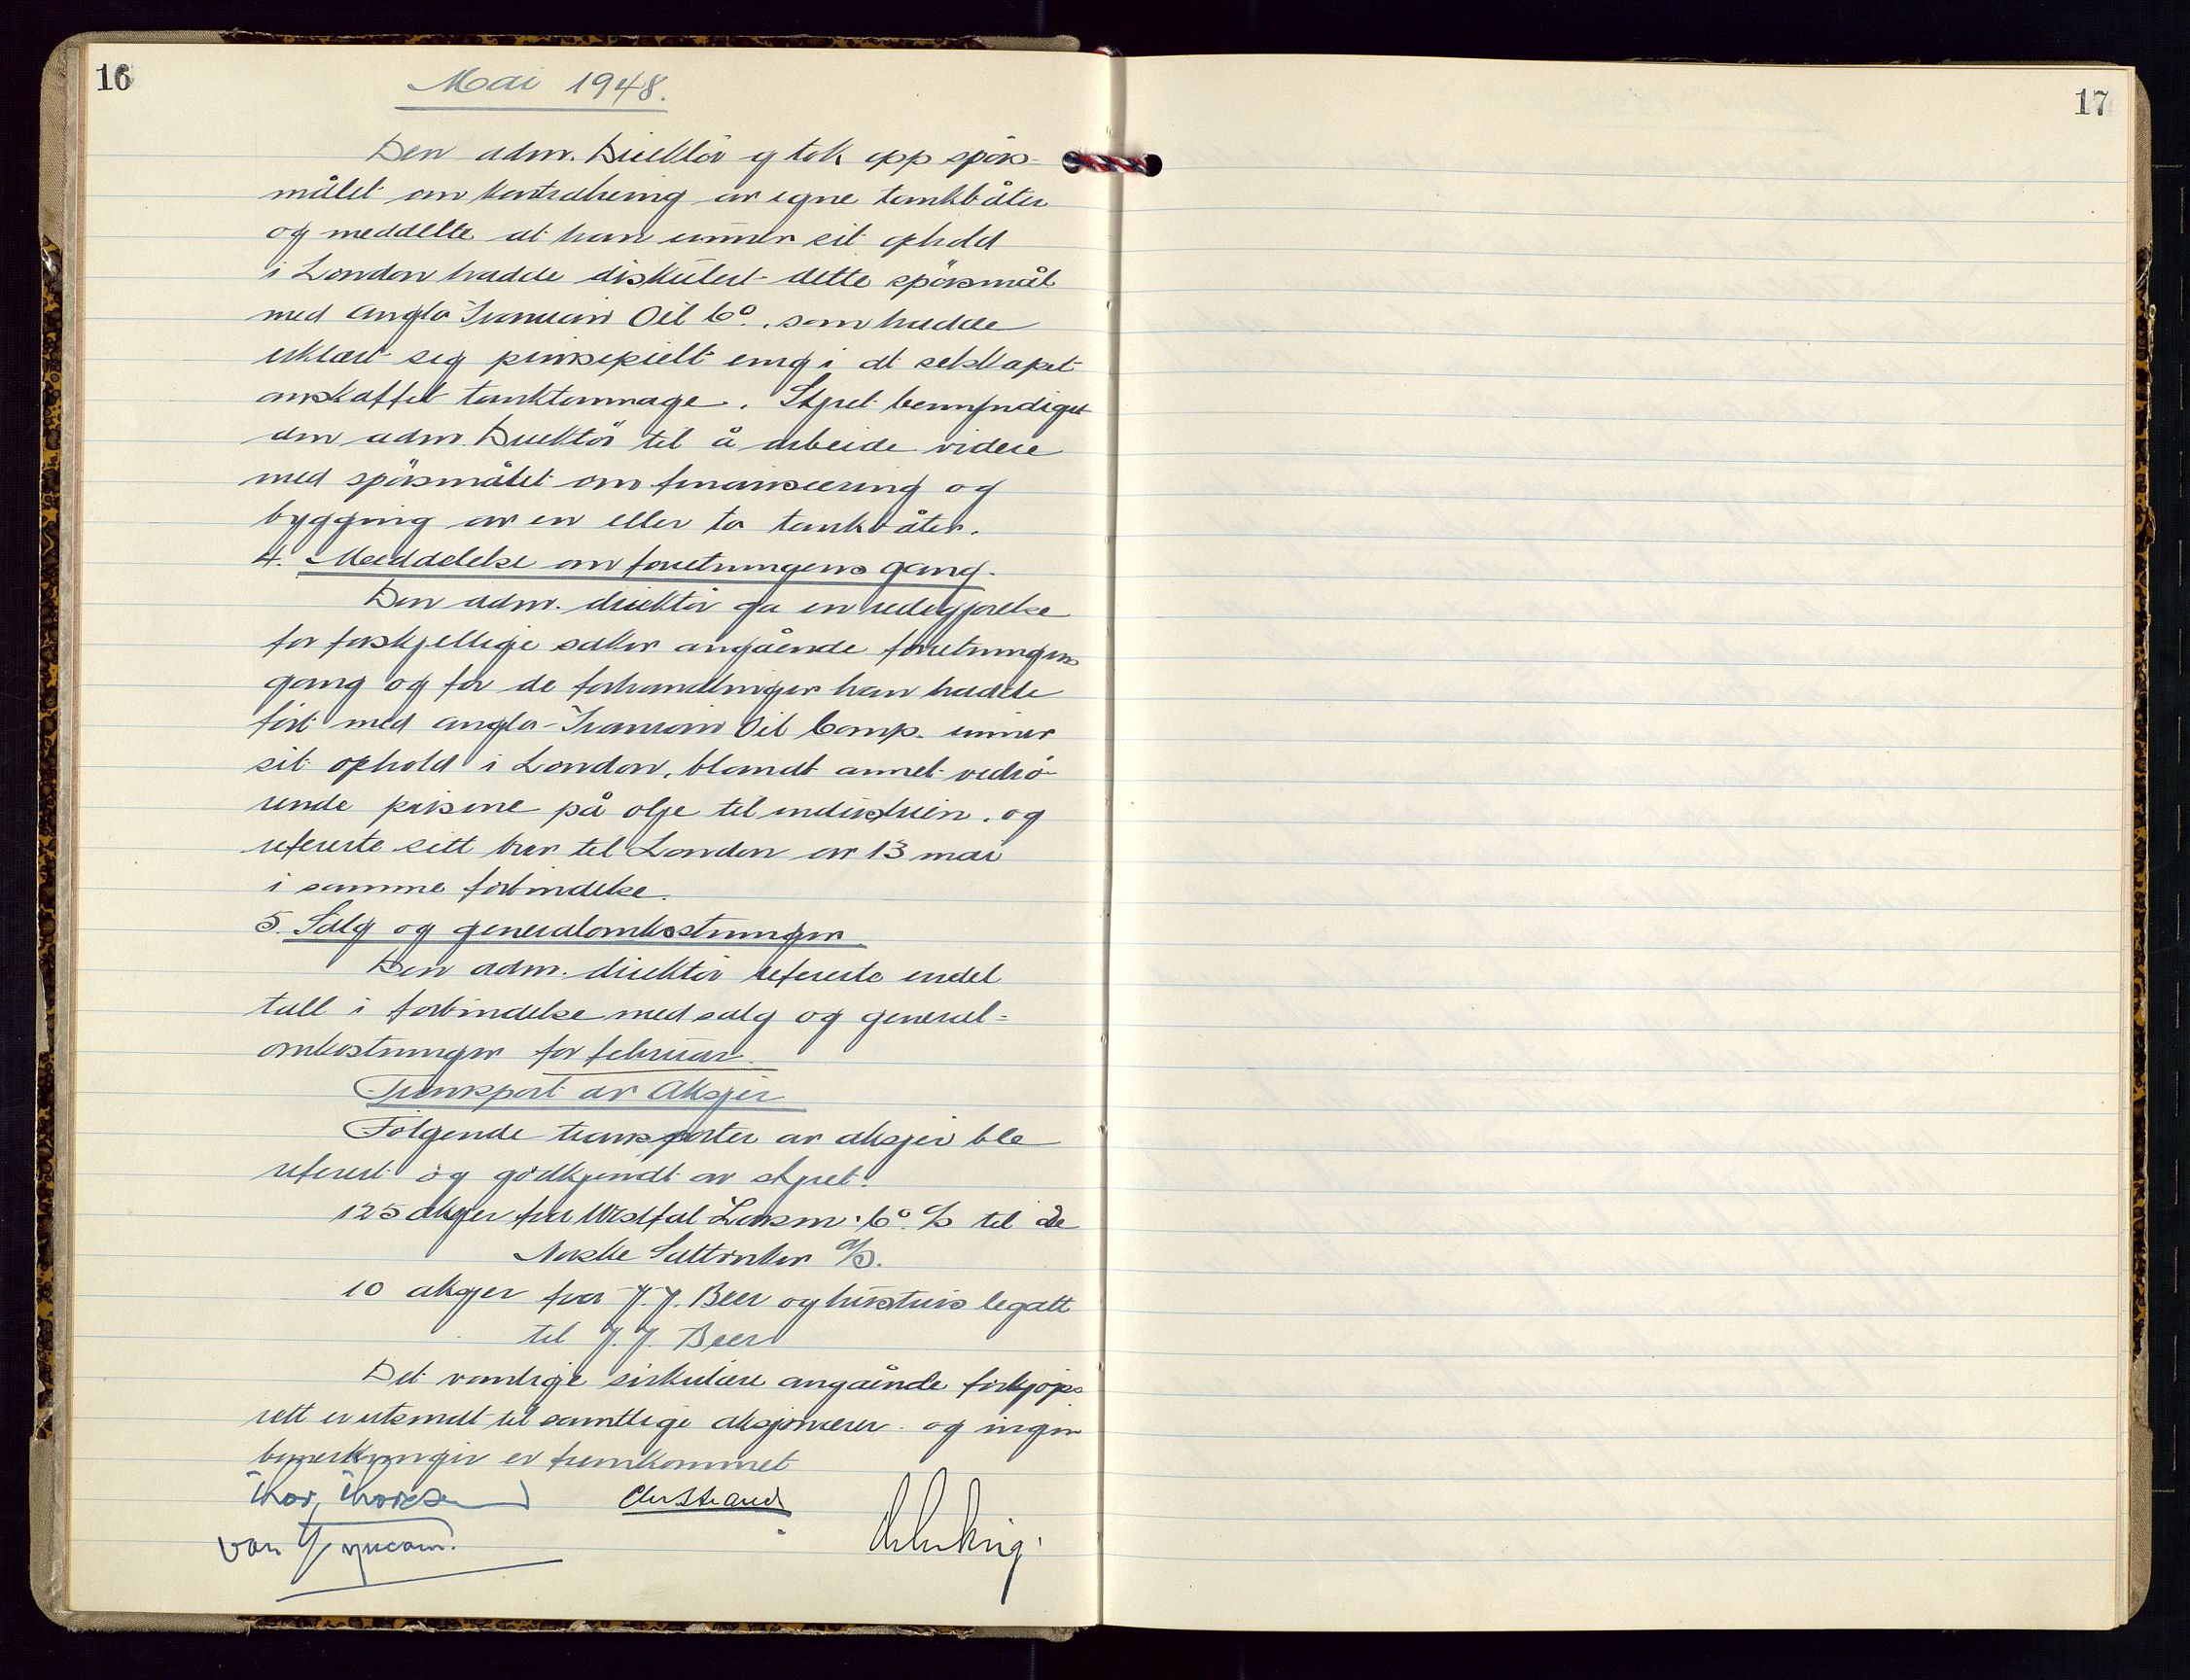 16
Mai 1948.
Den adm. Direktör og tok opp spörs-
målet om kontrahering av egne tankbåter
og meddelte at han unner sit ophold
i London hadde diskutert dette spörsmål
med Anglo Iranian Oil Co., som hadde
erklært seg prinsipielt enig i at selskapet
anskaffet tanktonnage. Styret bemyndiget
den adm. Direktör til å arbeide videre
med spörsmålet om finansiering og
bygging av en eller to tankbåter.
4. Meddelelse om forretningens gang.
Den adm. direktör ga en redegjorelse
for forskjellige saker angående forretningens
gang og for de forhandlinger han hadde
fört med Anglo-Iranian Oil Comp. unner
sit ophold i London, blandt annet vedrö-
rende prisene på olje til industrien, og
refererte sitt brev til London av 13 mai
i samme forbindelse.
5. Salg og generalomkostninger
Den adm. direktör refererte endel
tall i forbindelse med salg og general=
omkostninger for februar.
Transport av Aksjer
Fölgende transporter av aksjer ble
referert og godkjendt av styret:
125 aksjer fra Westfal Larsen & Co. A/S til de
Norske Saltverker A/S.
10 aksjer fra J. J. Beer og hustrus legatt
til J. J. Beer
Det vanlige sirkulære angående forkjöps
rett er utsendt til samtlige aksjonærer og ingen
bemerkninger er fremkommet
Thor, Thoresen
van
17